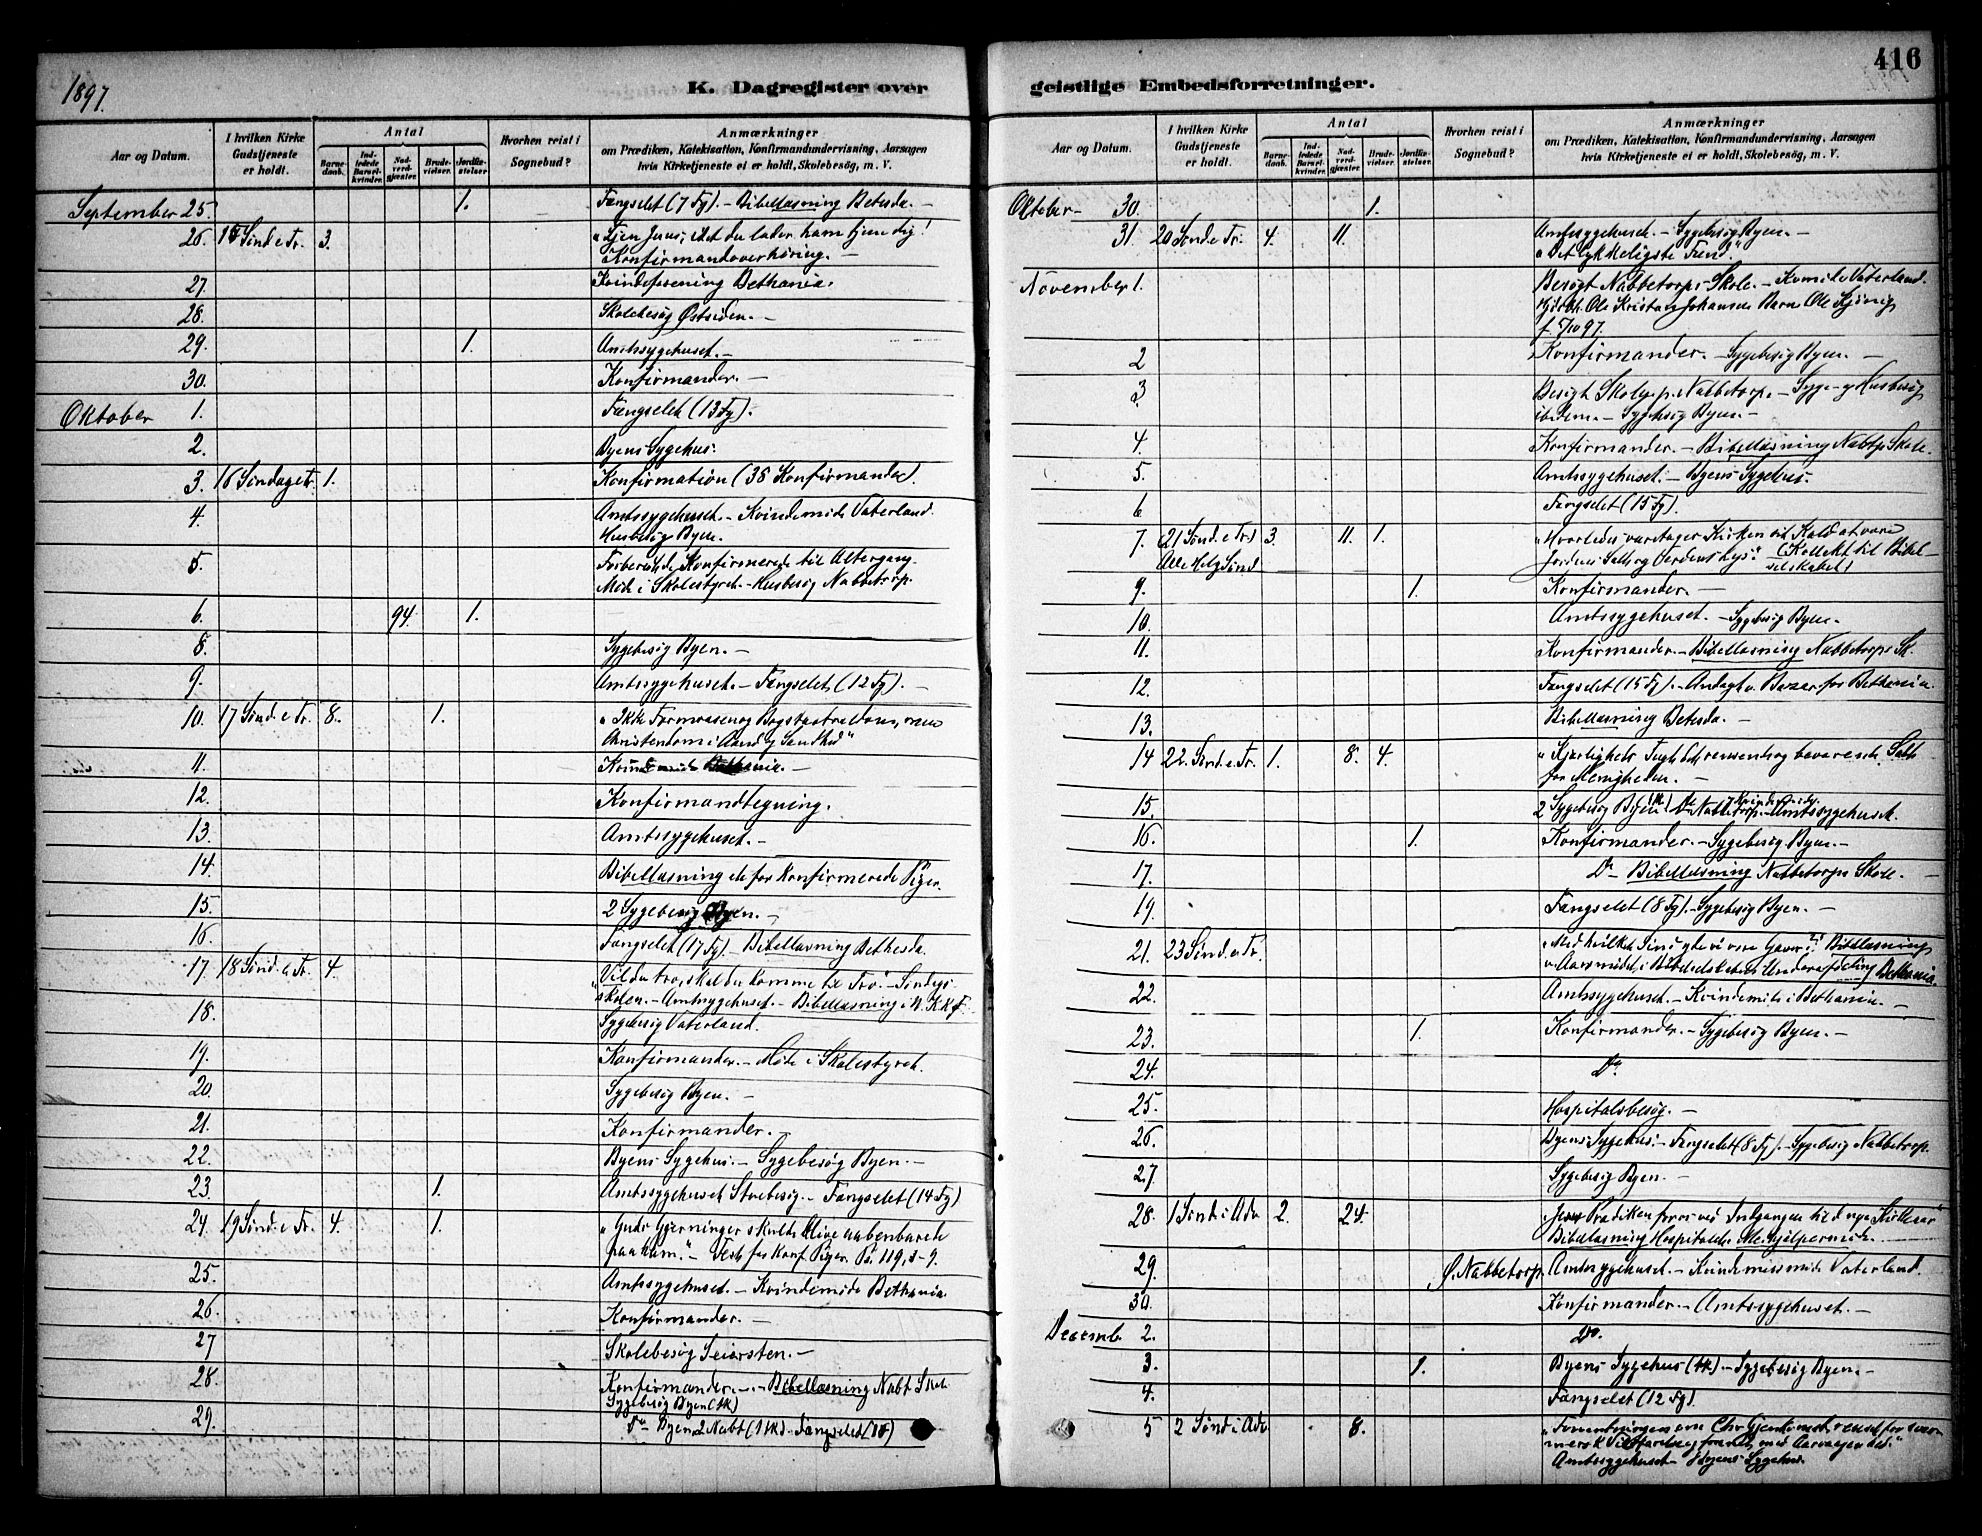 416
1897.
K. Dagregister over geistlige Embedsforretninger.
Aar og Datum.
I hvilken Kirke Gudstjeneste er holdt.
Antal
Barnedaab.
Indledede Barselkvinder.
Nadverdgjæster.
Brudevielser.
Jordfæstelser
Hvorhen reist i Sognebud?
Anmærkninger
om Prædiken, Katekisation, Konfirmandundervisning, Aarsagen
hvis Kirketjeneste ei er holdt, Skolebesög, m. V.
September 25. 1. Fængselet (7 Fg). – Bibellæsning Betesda. –
26. Sønd e Tr. 3. "Tjen Jesus, idet du lader ham tjene dig!
Konfirmandoverhøring. –
27. Kvindeforening Bethania.
28. Skolebesøg Østsiden. –
29. 1. Amtssygehuset. –
30. Konfirmander. –
Oktober 1. Fængselet (13 Fg).
2. Byens Sygehus.
3. 16 Søndag e Tr. 1. Konfirmation (38 Konfirmander).
4. Amtssygehuset. – Kvindemøde Vaterland.
Husbesøg Byen.
5. Forberedede Konfirmerede til Altergang
Møde i Skolestyret. – Husbesøg Nabbetorp.
6. 94. 1.
8. Sygebesøg Byen. –
9. Amtssygehuset. – Fængselet (12 Fg). –
10. 17 Sønd. e Tr. 8. 1. "Ikke Formvæsen og Bogstavtrældom, men
Christendom i Aand og Sandhed"
11. Kvindemøde Bethania. –
12. Konfirmandtegning.
13. Amtssygehuset. –
14. Bibellæsning de for Konfirmerede Piger.
15. 2 Sygebesøg Byen. –
16. Fængselet (17 Fg). – Bibellæsning Bethesda.
17. 18 Sønd. e Tr. 4. "Vil du tro, skal du komme til Tro". – Søndags
skolen. – Amtssygehuset. – Bibellæsning i N. K K F
18. Sygebesøg Vaterland.
19. Konfirmander. – Møde i Skolestyret.
20. Sygebesøg Byen. –
21. Konfirmander. –
22. Byens Sygehus. – Sygebesøg Byen. –
23. 1. Amtssygehuset – Fængselet (14 Fg)
24. 19 Sønd. e Tr. 4. 1. "Guds Gjerninger skulde blive aabenbarede
paa ham." – for Konf. Piger. Ps. 119,
25. Amtssygehuset. – Kvindemøde Bethania
26. Konfirmander. –
27 Skolebesøg Seiersten. –
28. Konfirmander. – Bibellæsning Nabt Skol.
Sygebesøg Byen
29. Do Byen 2 Nabt – Fængselet
Aar og Datum.
I hvilken Kirke Gudstjeneste er holdt.
Antal
Barnedaab.
Indledede Barselkvinder.
Nadverdgjæster.
Brudevielser.
Jordfæstelser.
Hvorhen reist i Sognebud?
Anmærkninger
om Prædiken, Katekisation, Konfirmandundervisning, Aarsagen
hvis Kirketjeneste ei er holdt, Skolebesög, m. V.
Oktober – 30. 1.
31. 20 Sønd. e Tr. 4. 11. Amtssygehuset. – Sygebesøg Byen. –
"Det lykkeligste Fund."
November 1. Besøgt Nabbetorps Skole. – Kvmøde Vaterland.
Hjdbt. Ole Kristian Johansens Barn Ole
f. 5/10 97.
2 Konfirmander. – Sygebesøg Byen. –
3. Besøgt Skolen p. Nabbetorp. – Syge- og Husbesøg
ibidem. – Sygebesøg Byen. –
4. Konfirmander. – Bibellæsning Nabtp Skole.
5. Amtssygehuset. – Byens Sygehus.
6 Fængselet (15 Fg).
7. 21 Sønd. e Tr. 3. 11. 1. "Hvorledes varetager Kirken sit Kald at være
Alle Helg Sønd Jordens Salt og Verdens Lys?" (Kollekt til Bibel-
selskabet)
9. 1. Konfirmander. –
10. Amtssygehuset. – Sygebesøg Byen.
11. Konfirmander. – Bibellæsning Nabbetorps Sk.
12. Fængselet (15 Fg). – Andagt v. Bazar for Bethania.
13. Bibellæsning Betesda. –
14 22. Sønd. e Tr. 1. 8. 4. "Kjærligheds Tugt et rensende og bevarende Salt
for Menigheden. –
15. 2 Sygebesøg Byen Do Nabbetorp. – Amtssygehuset.
16. 1. Konfirmander. – Sygebesøg Byen. –
17. Do – Bibellæsning Nabbetorps Skole. –
19. Fængselet (8 Fg). – Sygebesøg Byen. –
21. 23 Sønd. e Tr. "Med hvilket Sind yde vi vore Gaver?" Bibellæsning
v. Aarsmødet i Bibelselskabets Underafdeling Bethania.
22. Amtssygehuset. – Kvindemøde i Bethania. –
23. 1. Konfirmander. – Sygebesøg Byen. –
24. Do
25. Hospitalsbesøg. –
26. Byens Sygehus. – Fængselet (8 Fg). – Sygebesøg Nabbetorp.
27. Sygebesøg Byen. –
28. 1 Sønd i Adv 2. 24. "Jesu Prædiken for os ved Indgangen til d nye Kirkeaar"
Bibellæsning Hospitalets
29. Nabbetorp. Amtssygehuset. – Kvindemissmøde Vaterland.
30. Konfirmander. – Amtssygehuset. –
Decemb 2. Do.
3. 1. Byens Sygehus – Sygebesøg Byen. –
4. Fængselet (12 Fg).
5 2 Sønd i Adv 8.
Amtssygehuset – Byens Sygehus.